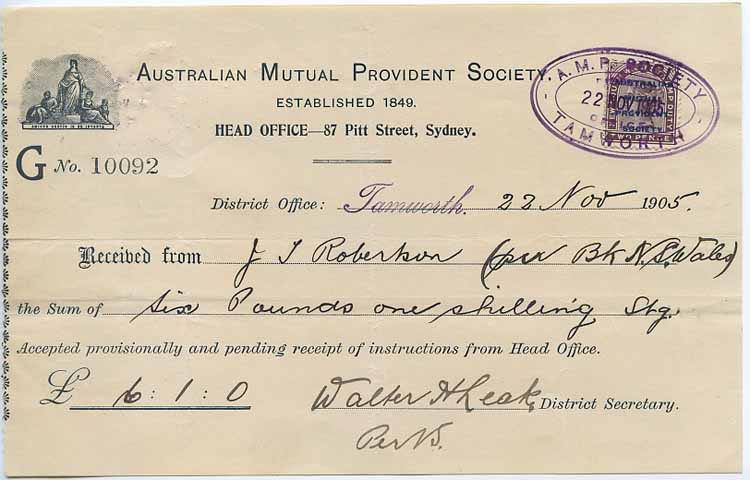 AUSTRALIAN MUTUAL PROVIDENT SOCIETY.
ESTABLISHED 1849.
HEAD OFFICE—87 Pitt Street, Sydney.
A. M. P. SOCIETY
AUSTRALIAN
22 NOV 1905
PROVIDENT
SOCIETY
TAMWORTH
G No. 10092
District Office: Tamworth. 22 Nov 1905.
Received from J T Robertson (per Bk N.S. Wales)
the Sum of Six Pounds one shilling Stg.
Accepted provisionally and pending receipt of instructions from Head Office.
£ 6 : 1 : 0 Walter H Leak, District Secretary.
Per